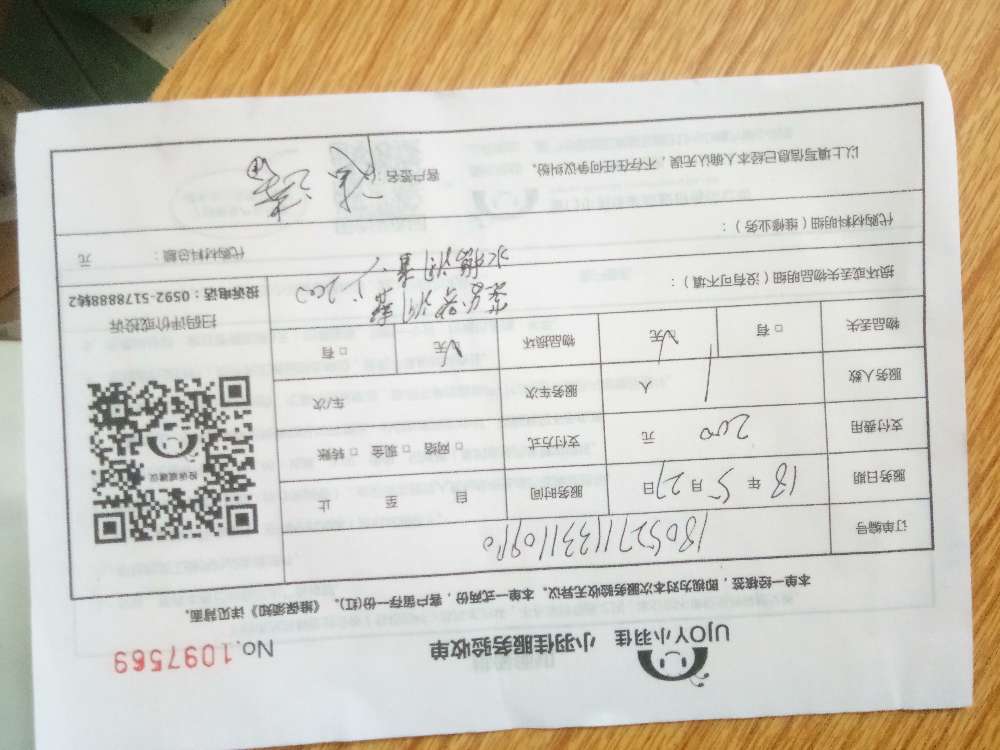 UJOY小羽佳 小羽佳服务验收单 No.1097569
本单一经核签，即视为对本次服务验收无异议。本单一式两份，客户留存一份(红)。《维保须知》详见背面。
订单编号
服务日期 18 年 5 月 27 日 服务时间 自 至 止
支付费用 200 元 支付方式 □ 网络 □ 现金 □ 转账
服务人数 1 人 服务车次 车/次
物品丢失 □ 有 □ 无 物品损坏 □ 无 □ 有
投诉或建议
扫码评价或投诉
投诉电话：0592-5178888转2
损坏或丢失物品明细（没有可不填）：
200
代购材料明细（维修业务）：
代购材料总额： 元
以上填写信息已经本人确认无误，不存在任何争议纠纷。 客户签名：